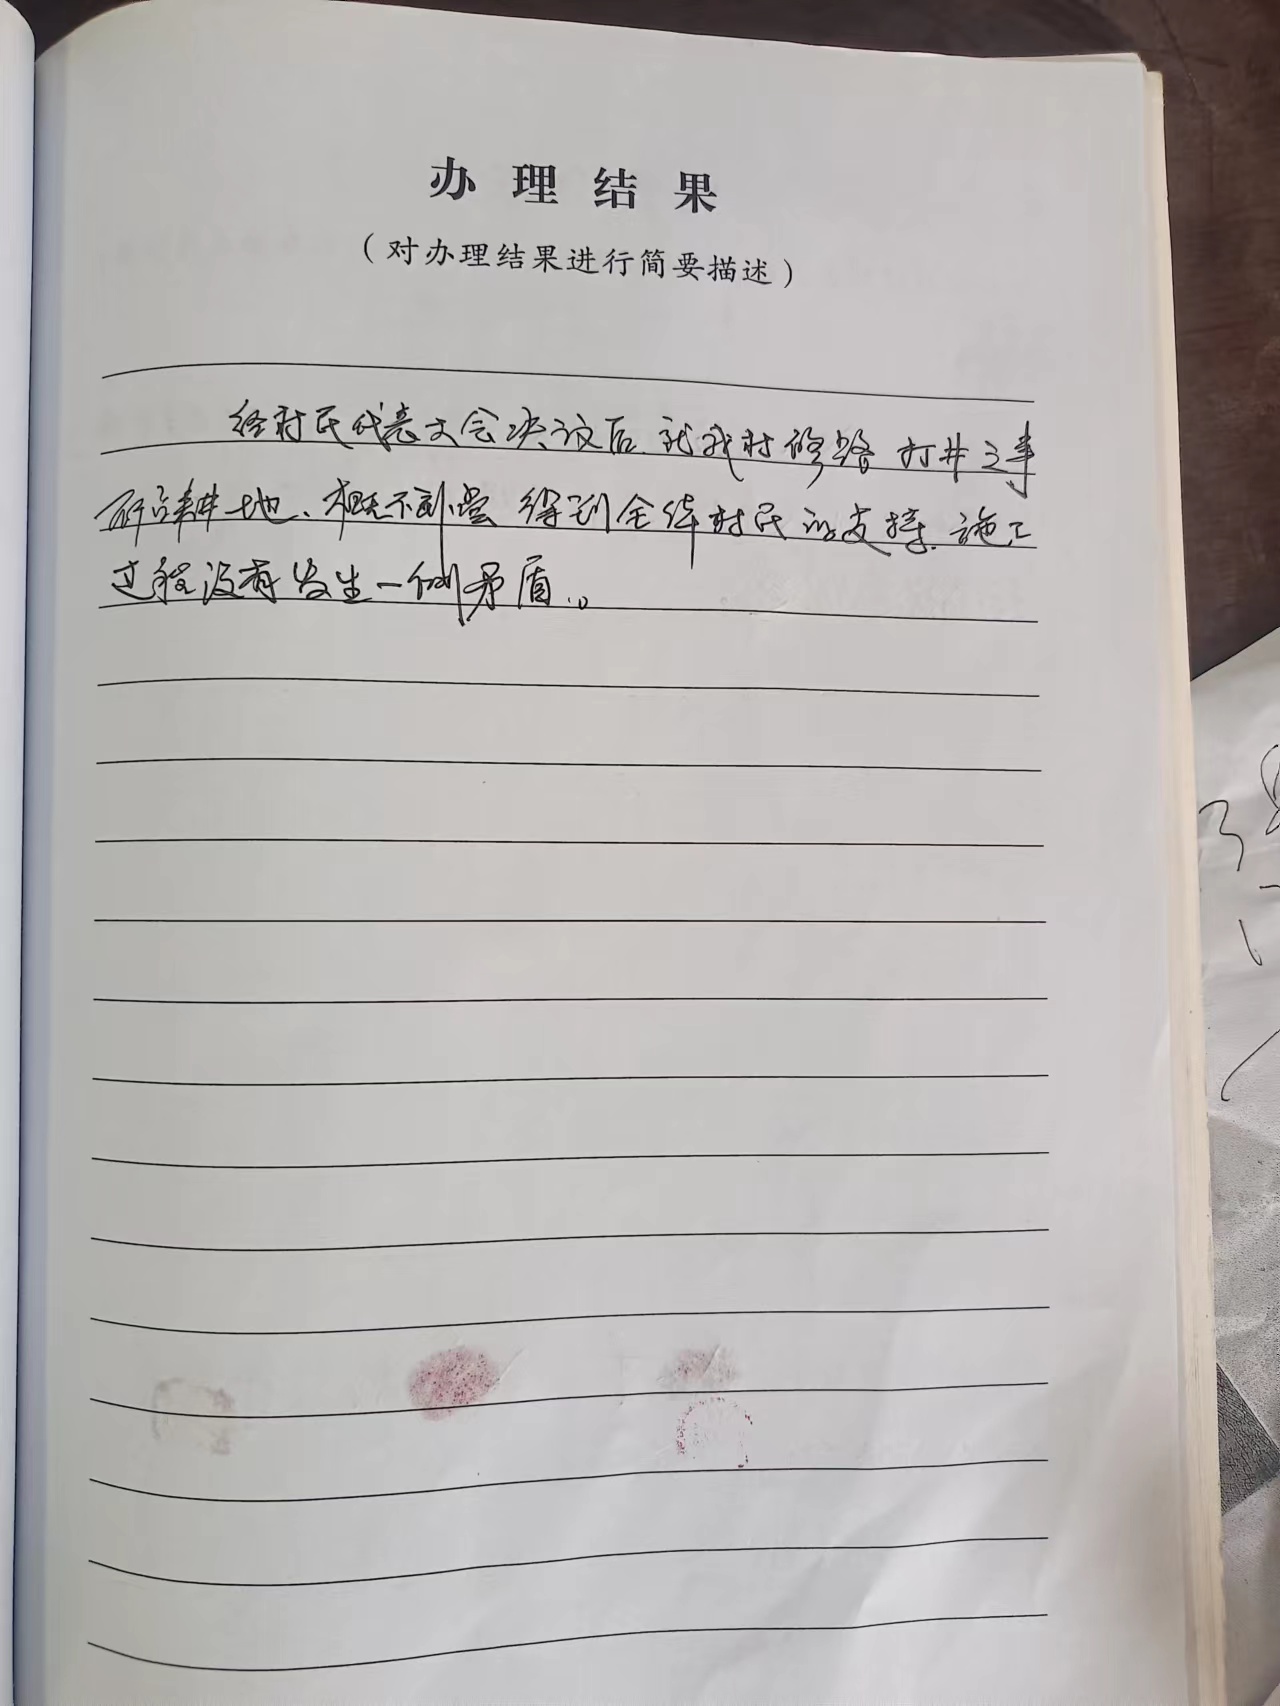 办理结果
（对办理结果进行简要描述）
经村民代表大会决议后.就我村修路 打井之事
所占耕地、概不补尝 得到全体村民的支持.施工
过程没有发生一例矛盾.。